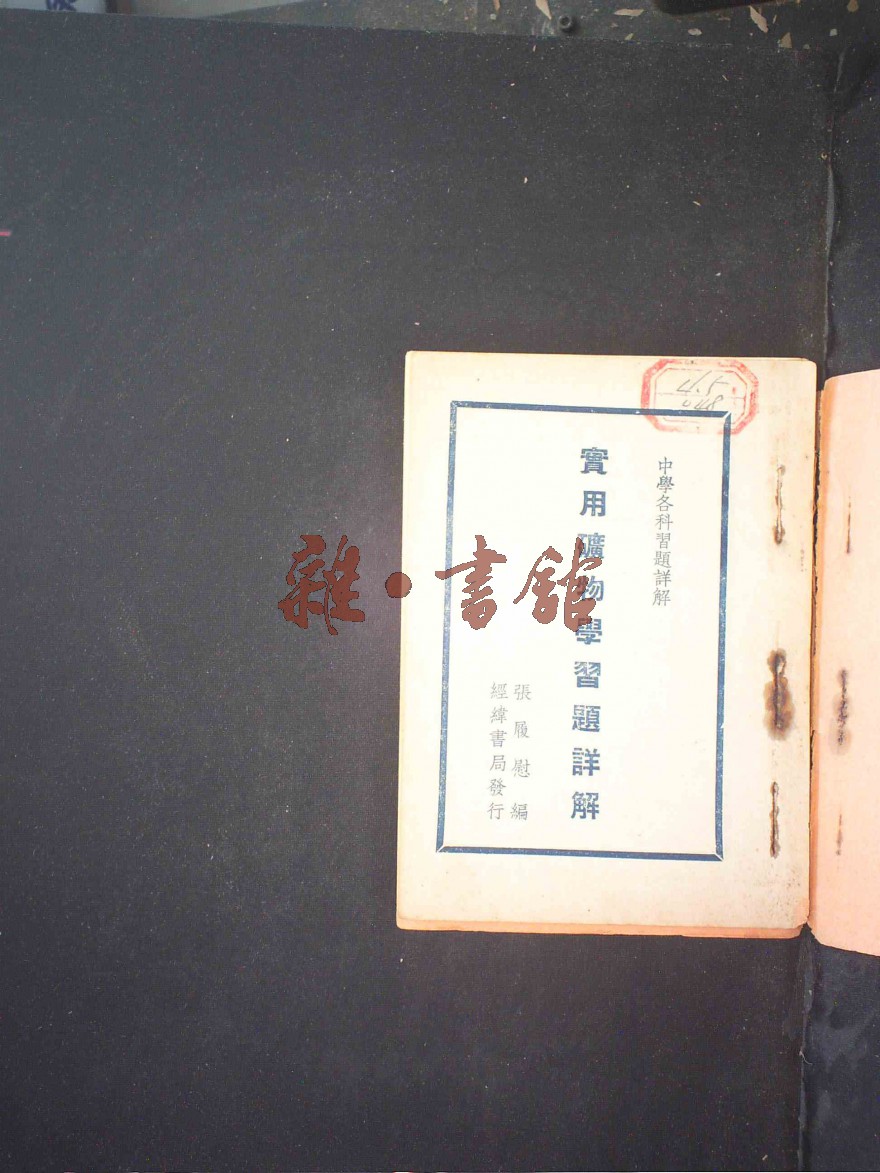 中學各科習題詳解
實用礦物學習題詳解
張履慰編
經緯書局發行
4.5
048
雜·書館